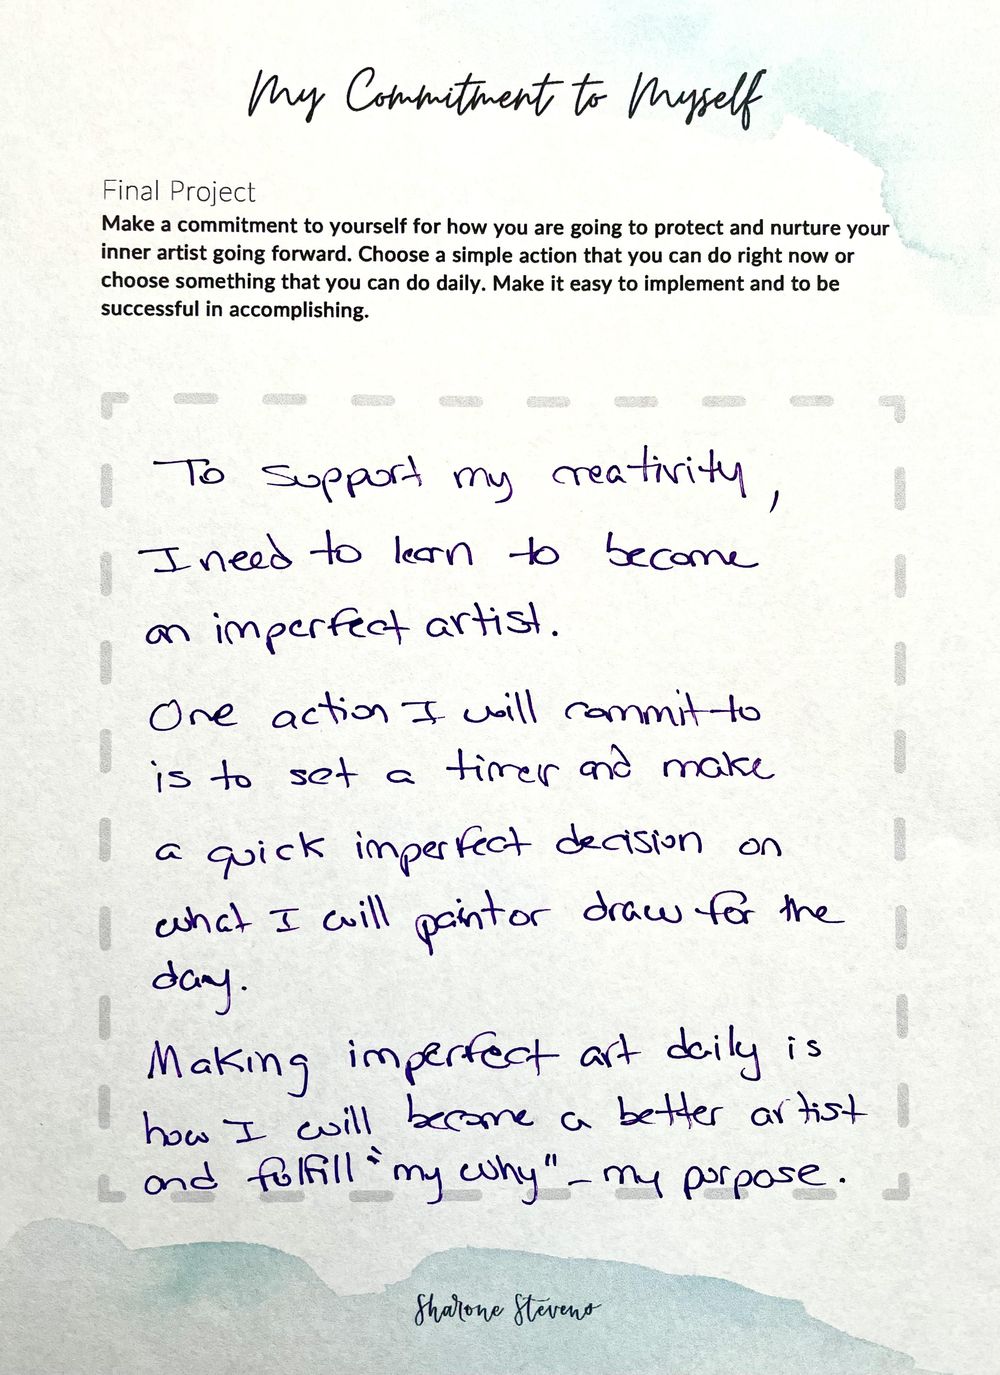 My Commitment to Myself
Final Project
Make a commitment to yourself for how you are going to protect and nurture your
inner artist going forward. Choose a simple action that you can do right now or
choose something that you can do daily. Make it easy to implement and to be
successful in accomplishing.
To support my creativity,
I need to learn to become
an imperfect artist.
One action I will commit to
is to set a timer and make
a quick imperfect decision on
what I will paint or draw for the
day.
Making imperfect art daily is
how I will become a better artist
and fulfill "my why" – my purpose.
Sharone Stevens